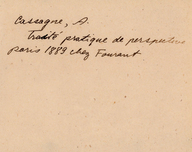 Cassagne, A.
Traité pratique de perspective
paris 1889 chez Fourant